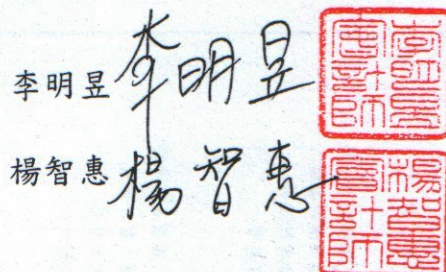 李明昱 李明昱
李明昱
會計師
楊智惠 楊智惠
楊智惠
會計師